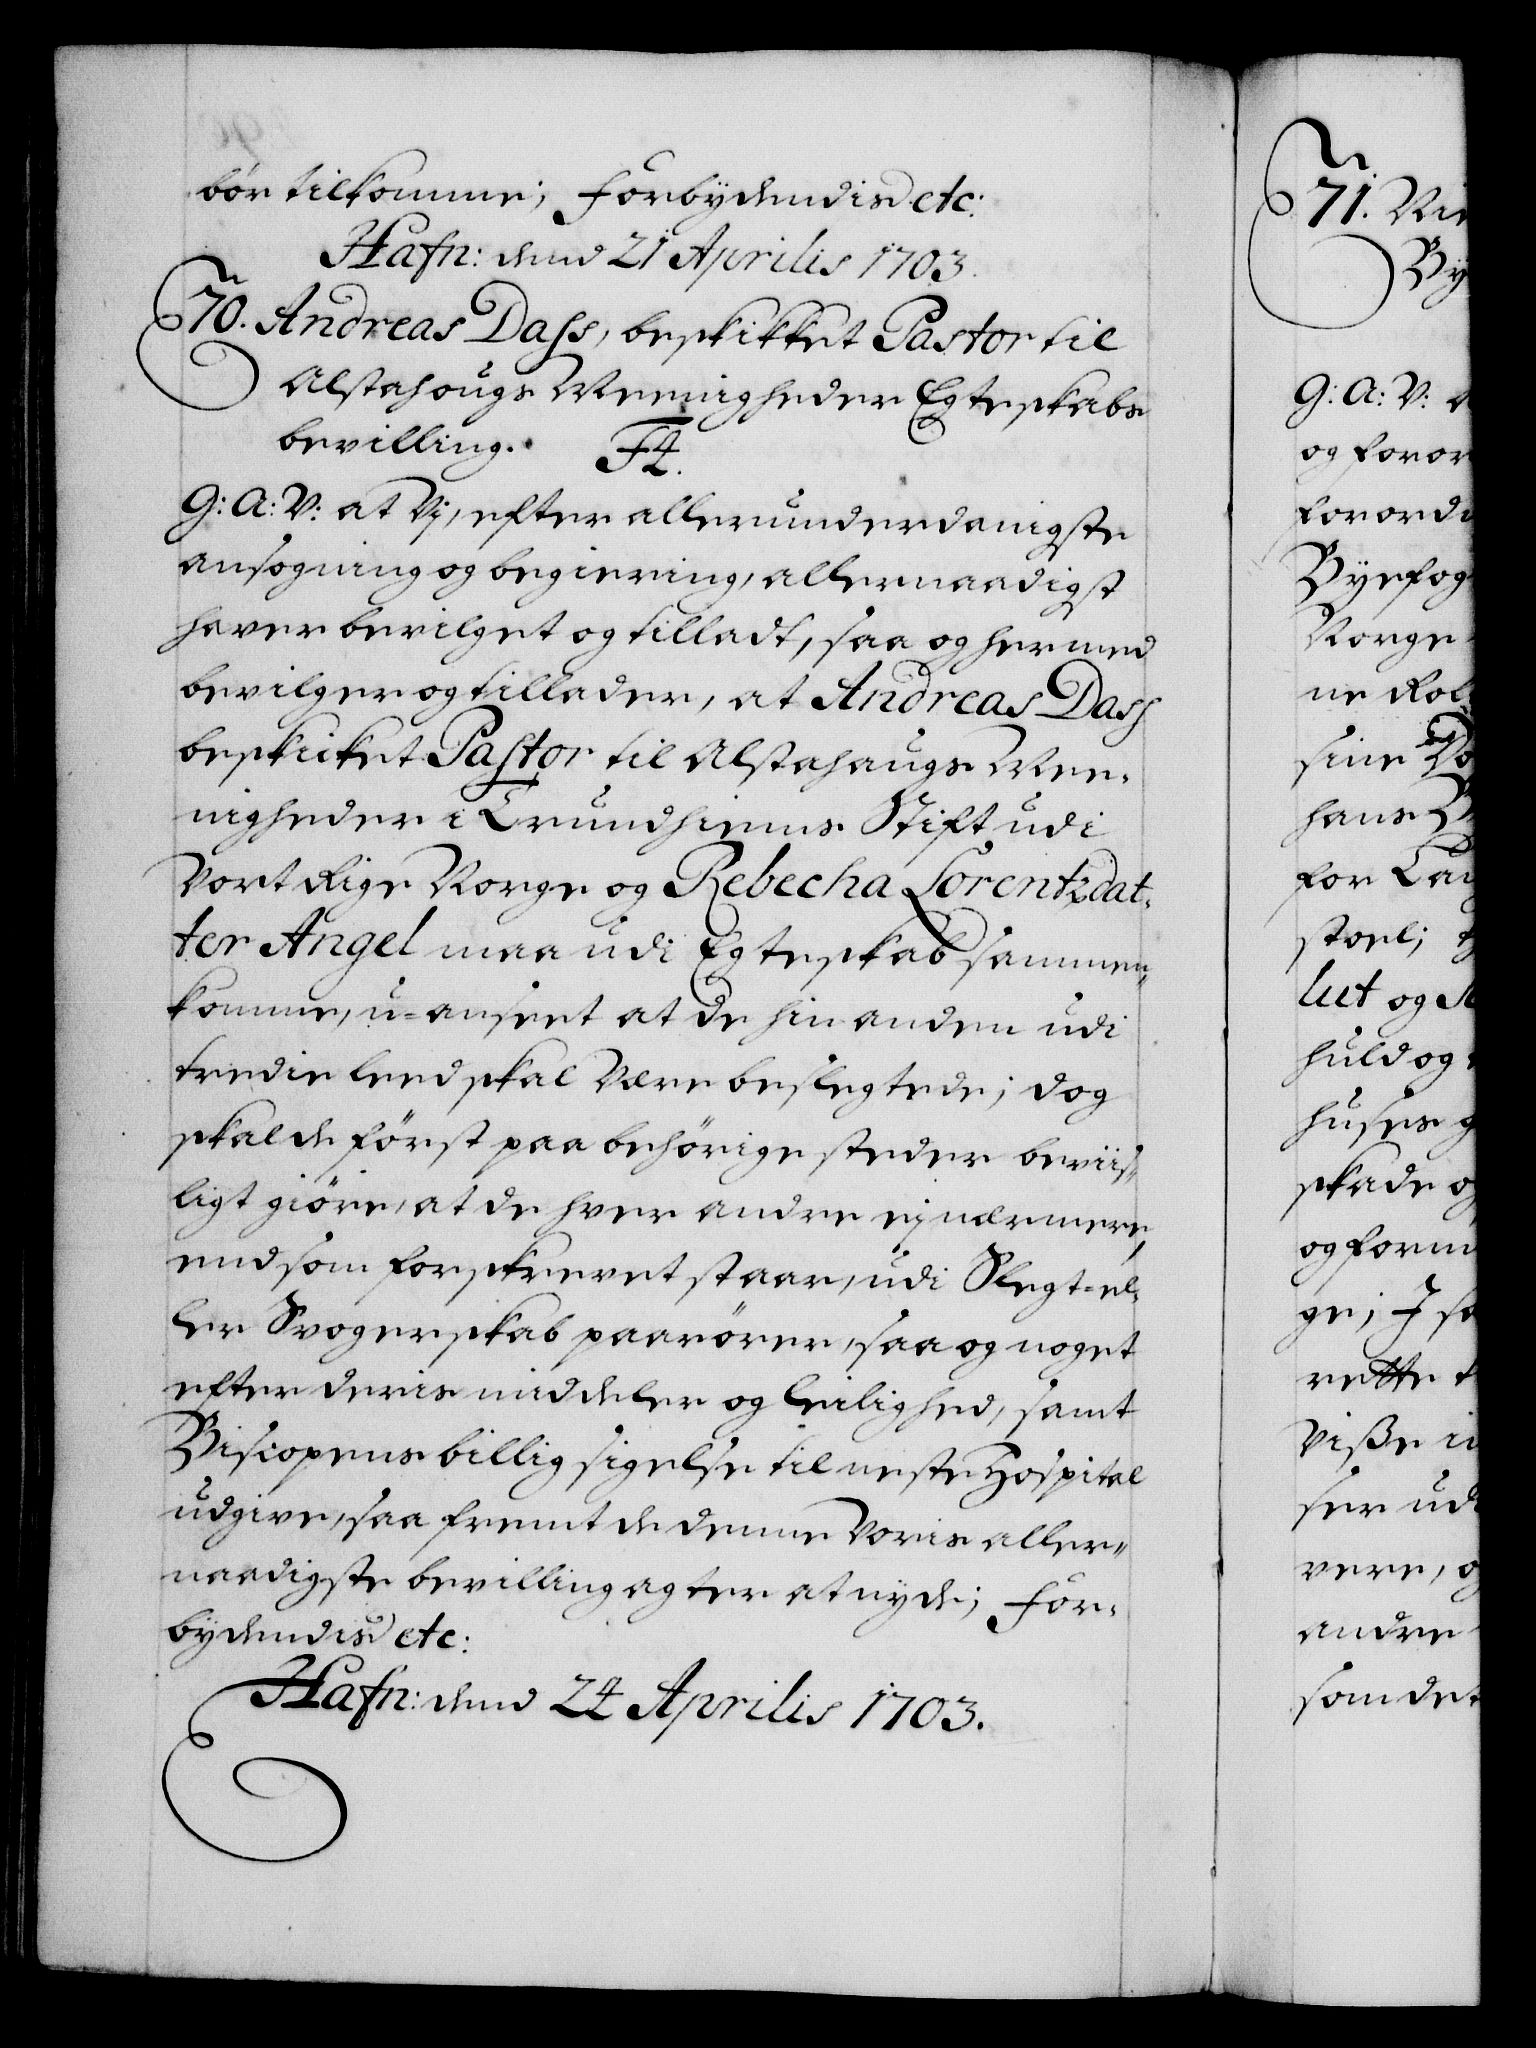 bör tilkomme; Forbydendis etc:
Hafn: dend 21 Aprilis 1703.
70. Andreas Dass, beskikket Pastor til
Alstahougs Meenigheder Egteskabs
bevilling. F4.
G: A: V: at Vj, efter allerunderdanigste
ansøgning og begiering, allernaadigst
haver bevilget og tilladt, saa og hermed
bevilger og tillader, at Andreas Dass
beskicket Pastor til Alstahaugs Mee-
nigheder i Trundhiems Stift udi
Vort Rige Norge og Rebecha Lorentzdat-
ter Angel maa udi Egteskab sammen
komme, u-anseet at de hin anden udi
tredie leed skal være beslegtede; dog
skal de först paa behörige steder beviis-
ligt giöre, at de hver andre ej nærmere,
end som forskrevet staar, udi Slegt- el-
ler Svogerskab paarörer, saa og noget
efter deris middeler og leilighed, samt
Biscopens billig sigelse til neste Hospital
udgive, saa fremt de denne Voris aller-
naadigste bevilling agter at nyde; For-
bydendis etc:
Hafn: dend 24 Aprilis 1703.
71.
By
G: A: V:
og foror
forord
Byefog
Norge
ne Rol
sine
hans
for
stoel;
lut og
huld og
huses
skade
og form
ge; J
rette
Viße
ser ud
vere,
andre
som det